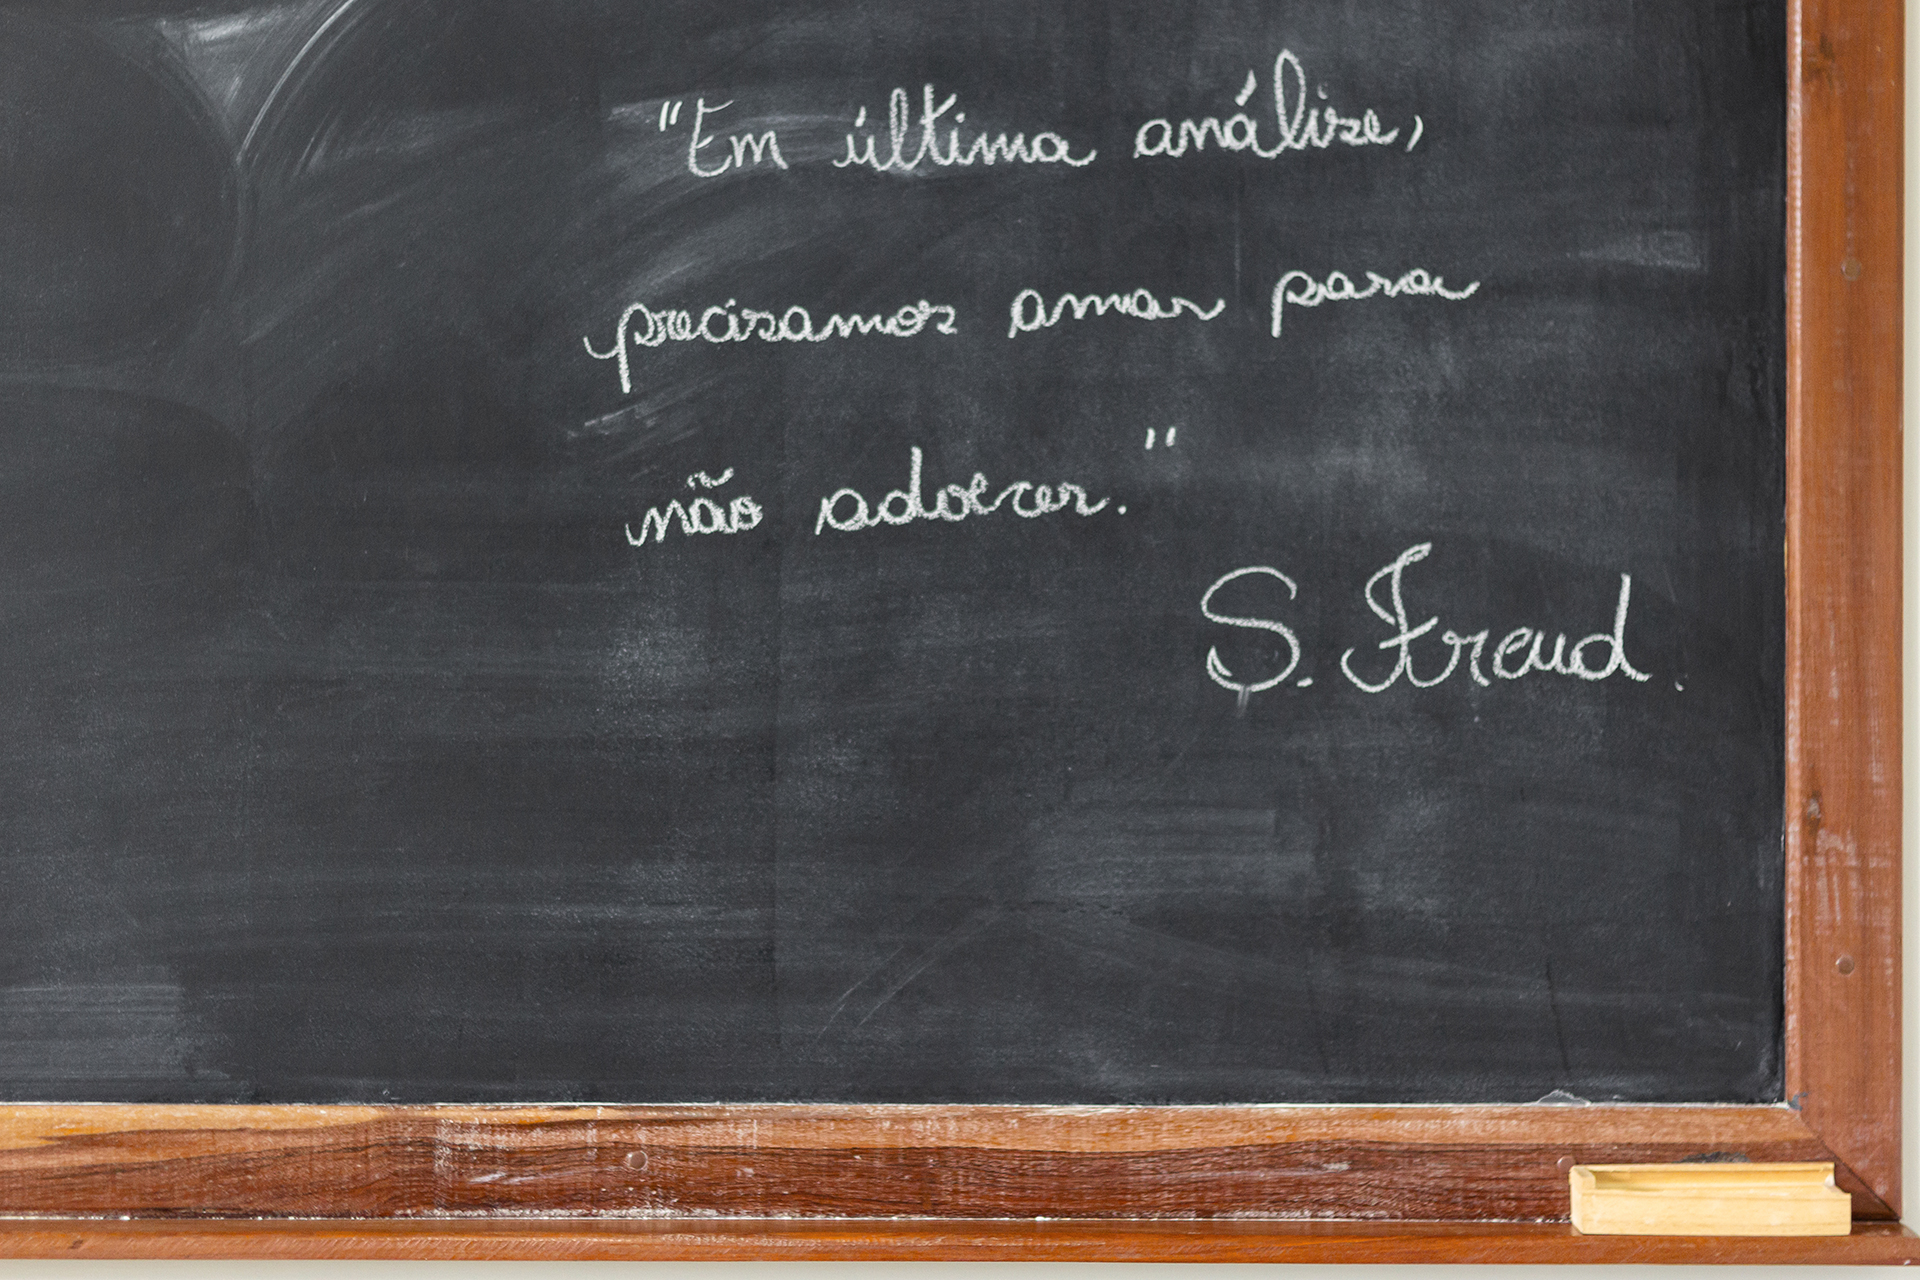 "Em última análise,
precisamos amar para
não adoecer."
S. Freud.